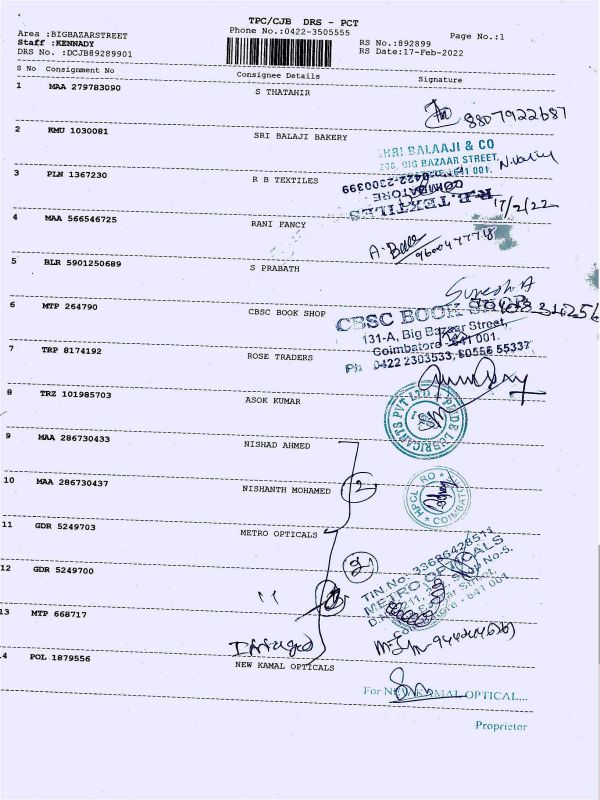 TPC/CJB DRS - PCT
Area :BIGBAZARSTREET
Phone No.:0422-3505555
Page No.:1
Staff :KENNADY
RS No.:892899
DRS No. :DCJB89289901
RS Date:17-Feb-2022
S No Consignment No Consignee Details Signature
1 MAA 279783090 S THATAHIR
8807922687
2 KMU 1030081 SRI BALAJI BAKERY
SHRI BALAAJI & CO
BIG BAZAAR STREET,
3 PLN 1367230 R B TEXTILES
0422-2300399
COIMBATORE
R.B. TEXTILES
17/2/22
4 MAA 566546725 RANI FANCY
5 BLR 5901250689 S PRABATH
Suresh A
6 MTP 264790 CBSC BOOK SHOP
CBSC BOOK SHOP
131-A, Big Bazaar Street,
Coimbatore - 641 001.
Ph: 0422 2303533, 80556 55337
7 TRP 8174192 ROSE TRADERS
8 TRZ 101985703 ASOK KUMAR
LUBRICANTS PVT LTD
9 MAA 286730433 NISHAD AHMED
10 MAA 286730437 NISHANTH MOHAMED
2
HPCL RO
COIMBATORE
11 GDR 5249703 METRO OPTICALS
2
TIN No. 33686426511
METRO OPTICALS
12 GDR 5249700
"
641 001
13 MTP 668717
14 POL 1879556 NEW KAMAL OPTICALS
For NEW KAMAL OPTICAL...
Proprietor